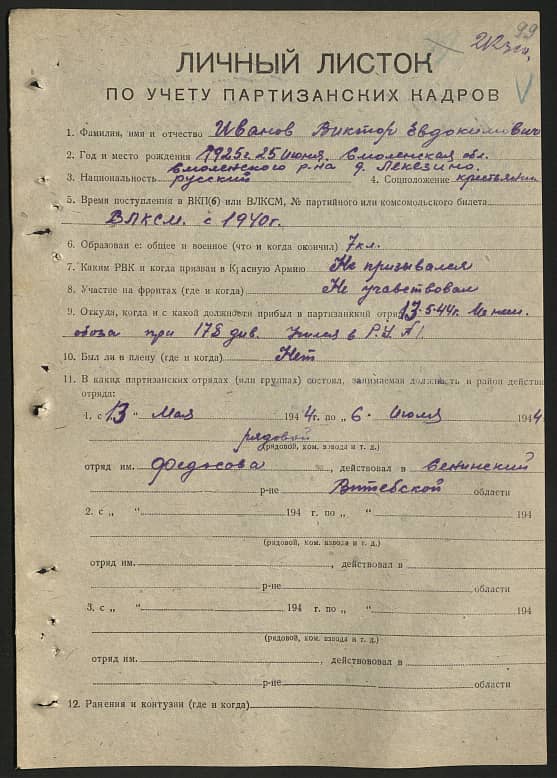 99
ЛИЧНЫЙ ЛИСТОК
ПО УЧЕТУ ПАРТИЗАНСКИХ КАДРОВ
1. Фамилия, имя и отчество Иванов Виктор Евдокимович
2. Год и место рождения 1925 г. 25 июня. Смоленская обл.
Смоленского р-на д. Лекезино.
3. Национальность русский 4. Соцположение крестьянин
5. Время поступления в ВКП(б) или ВЛКСМ, № партийного или комсомольского билета
ВЛКСМ. с 1940 г.
6. Образование: общее и военное (что и когда окончил) 7 кл.
7. Каким РВК и когда призван в Красную Армию Не призывался
8. Участие на фронтах (где и когда) Не учавствовал
9. Откуда, когда и с какой должности прибыл в партизанский отряд 13-5-44 г. Из нем.
обоза при 178 див.
10. Был ли в плену (где и когда) Нет
11. В каких партизанских отрядах (или группах) состоял, занимаемая должность и район действия
отряда:
1. с 13 " Мая 1944 г. по " 6 - Июля 1944
рядовой
(рядовой, ком. взвода и т. д.)
отряд им. Федосова, действовал в Сенинский
р-не Витебской области
2. с " " 194 г. по " " 194
(рядовой, ком. взвода и т. д.)
отряд им. , действовал в
р-не области
3. с " " 194 г. по " " 194
(рядовой, ком. взвода и т. д.)
отряд им. , действововал в
р-не области
12. Ранения и контузии (где и когда)